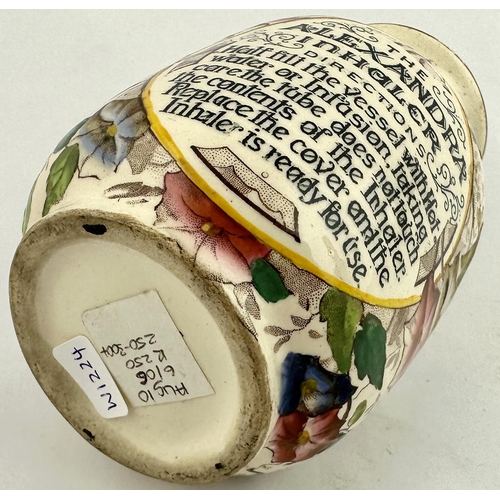 THE
ALEXANDRA
INHALOR
DIRECTIONS
Half fill the vessel with Hot
water or Infusion, taking
care the tube does not touch
the contents of the Inhaler
Replace the cover and the
Inhaler is ready for use
W1224
AUG 10
6/06
R250
250-300+